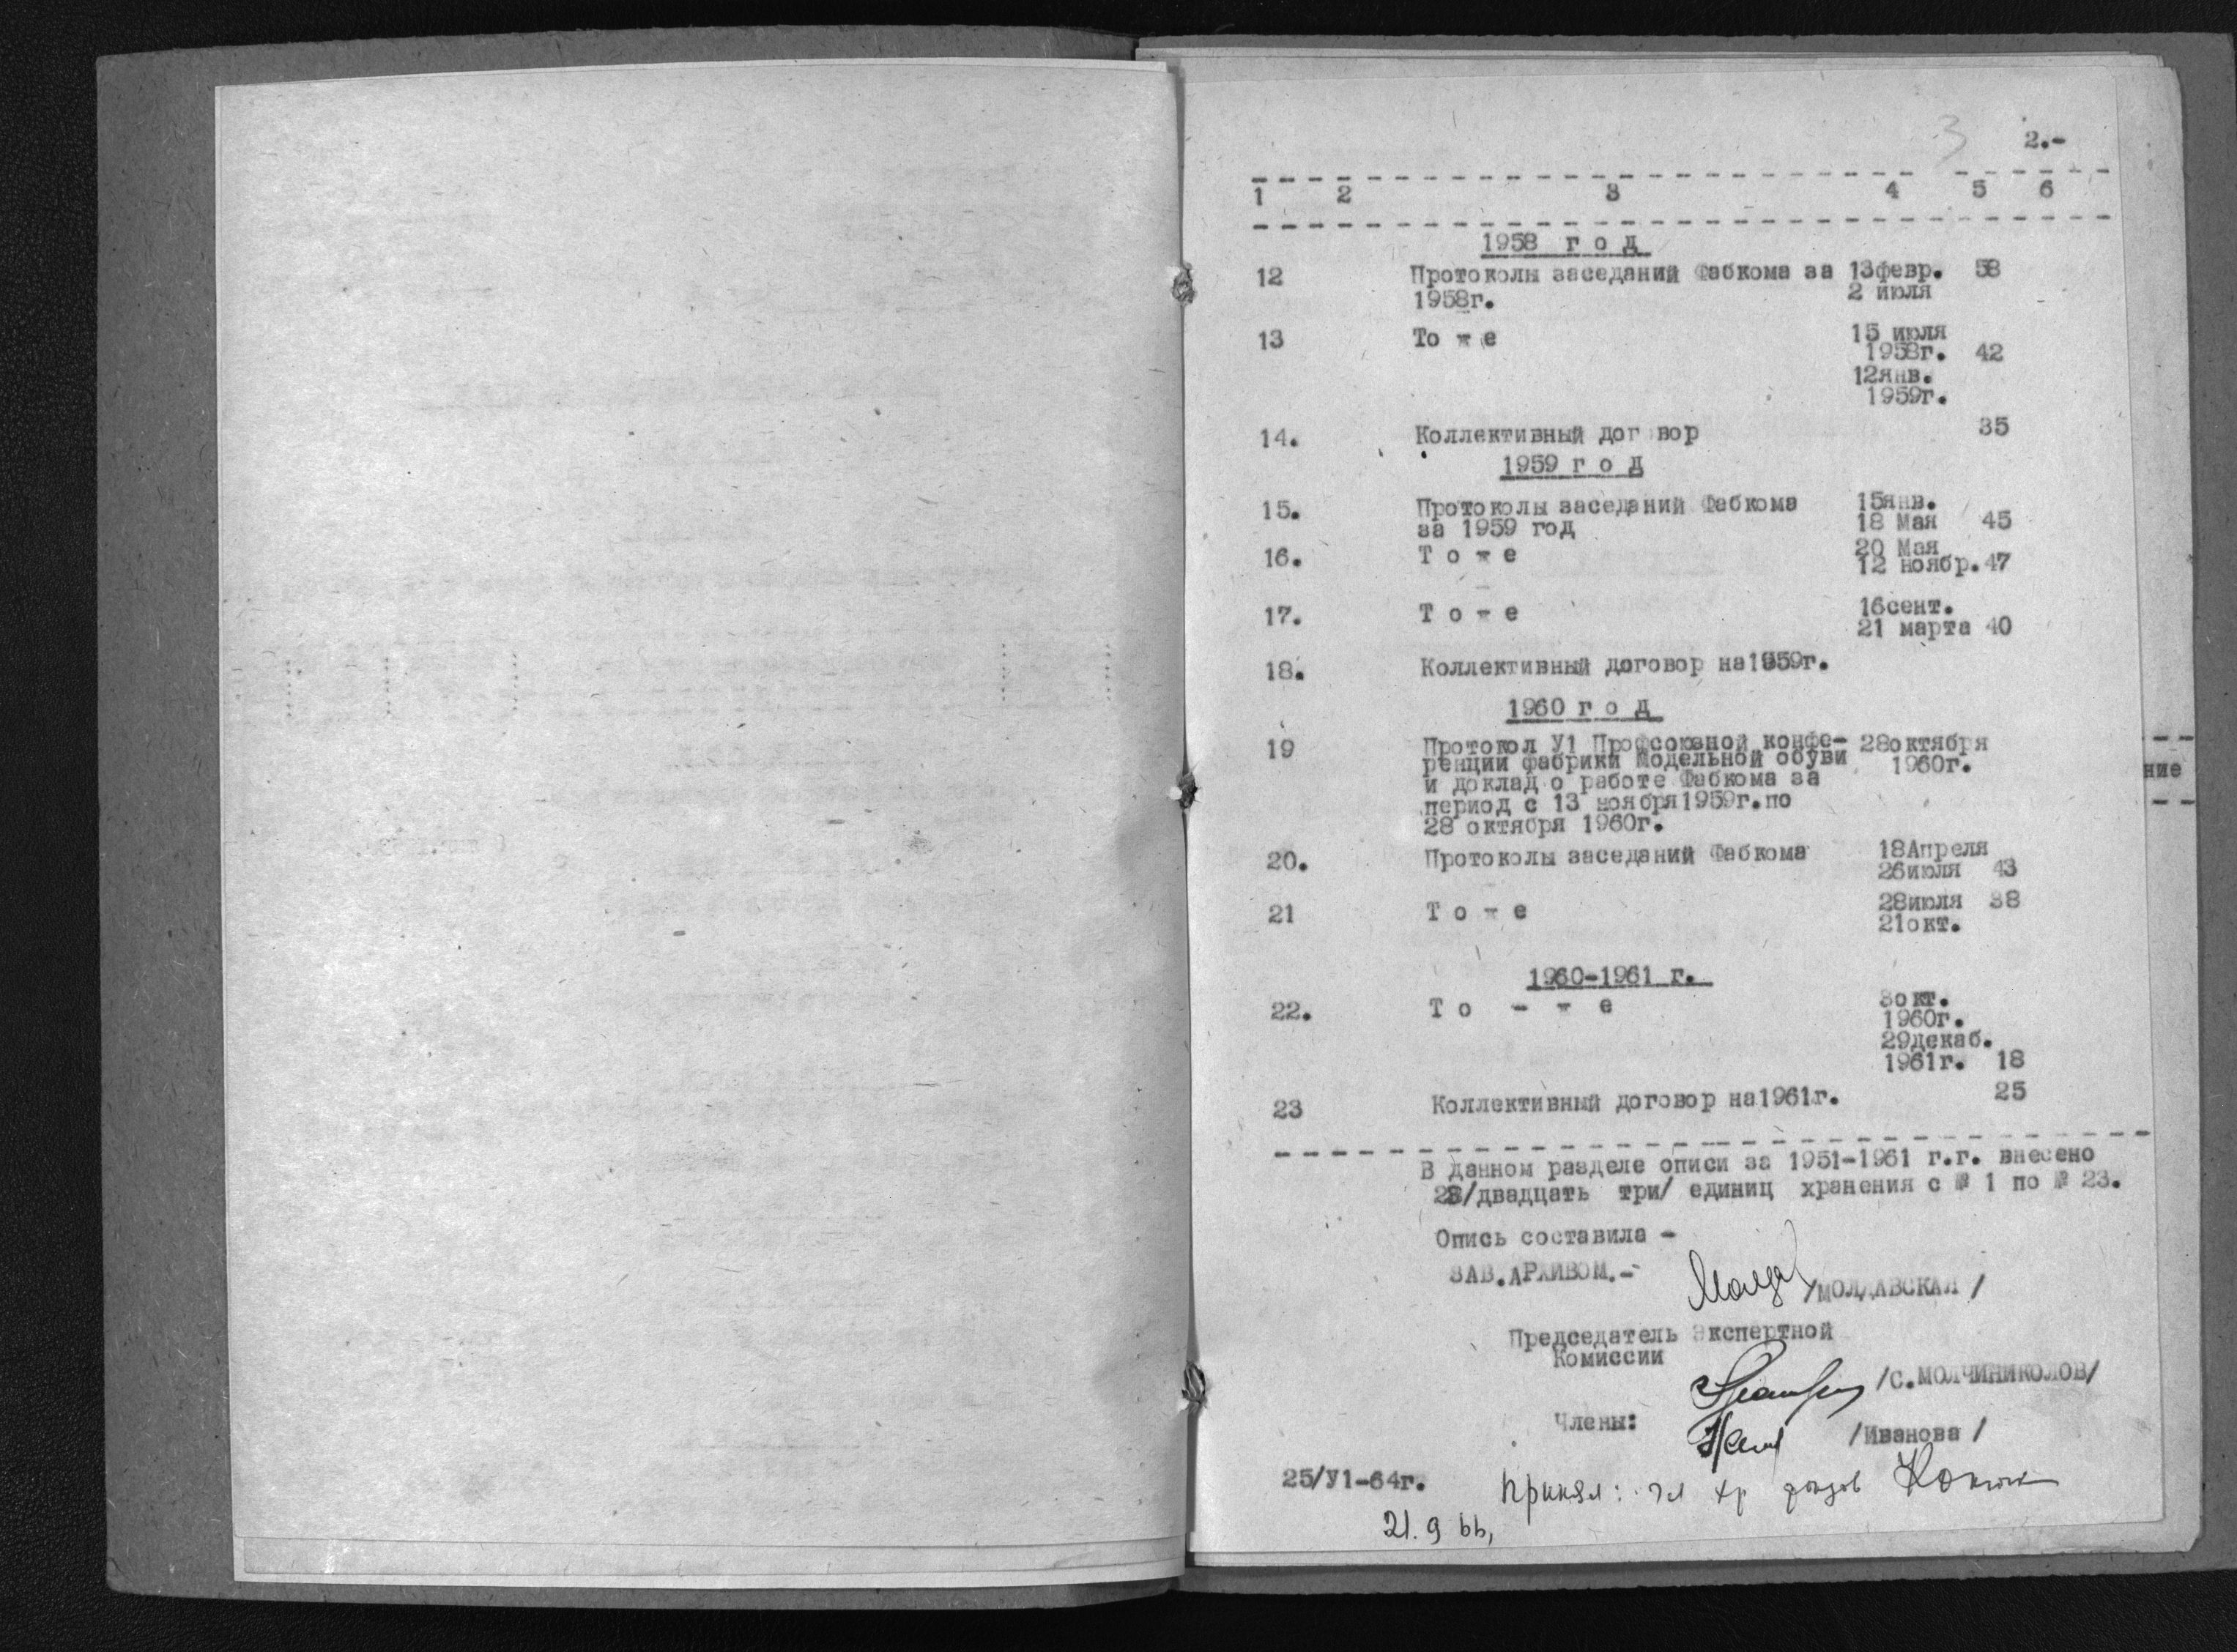 3 2.-
1 2 3 4 5 6
1958 г о д
12 Протоколы заседаний Фабкома за 13февр. 58
1958г. 2 июля
13 То же 15 июля
1958г. 42
12янв.
1959г.
14. Коллективный дог вор 35
1959 г о д
15. Протоколы заседаний Фабкома 15янв.
за 1959 год 18 Мая 45
16. Т о ж е 20 Мая
12 ноябр. 47
17. Т о ж е 16сент.
21 марта 40
18. Коллективный договор на1959г.
1960 г о д
19 Протокол У1 Профсоюзной конфе- 28октября
ренции фабрики Модельной обуви 1960г.
и доклад о работе Фабкома за
период с 13 ноября1959г.по
28 октября 1960г.
ние
20. Протоколы заседаний Фабкома 18Апреля
26июля 43
21 Т о ж е 28июля 38
21окт.
1960-1961 г.
22. Т о - ж е 3окт.
1960г.
29декаб.
1961г. 18
23 Коллективный договор на1961г. 25
В данном разделе описи за 1951-1961 г.г. внесено
23/двадцать три/ единиц хранения с № 1 по № 23.
Опись составила -
ЗАВ.АРХИВОМ.- /МОЛДАВСКАЯ /
Председатель Экспертной
Комиссии /С.МОЛЧИНИКОЛОВ/
Члены: /Иванова /
25/У1-64г. Принял: гл хр фондов
21. 9 66,